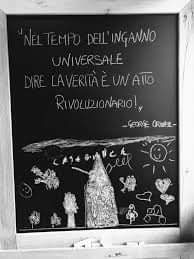 "NEL TEMPO DELL'INGANNO
UNIVERSALE
DIRE LA VERITÀ È UN ATTO
RIVOLUZIONARIO!"
- GEORGE ORWELL